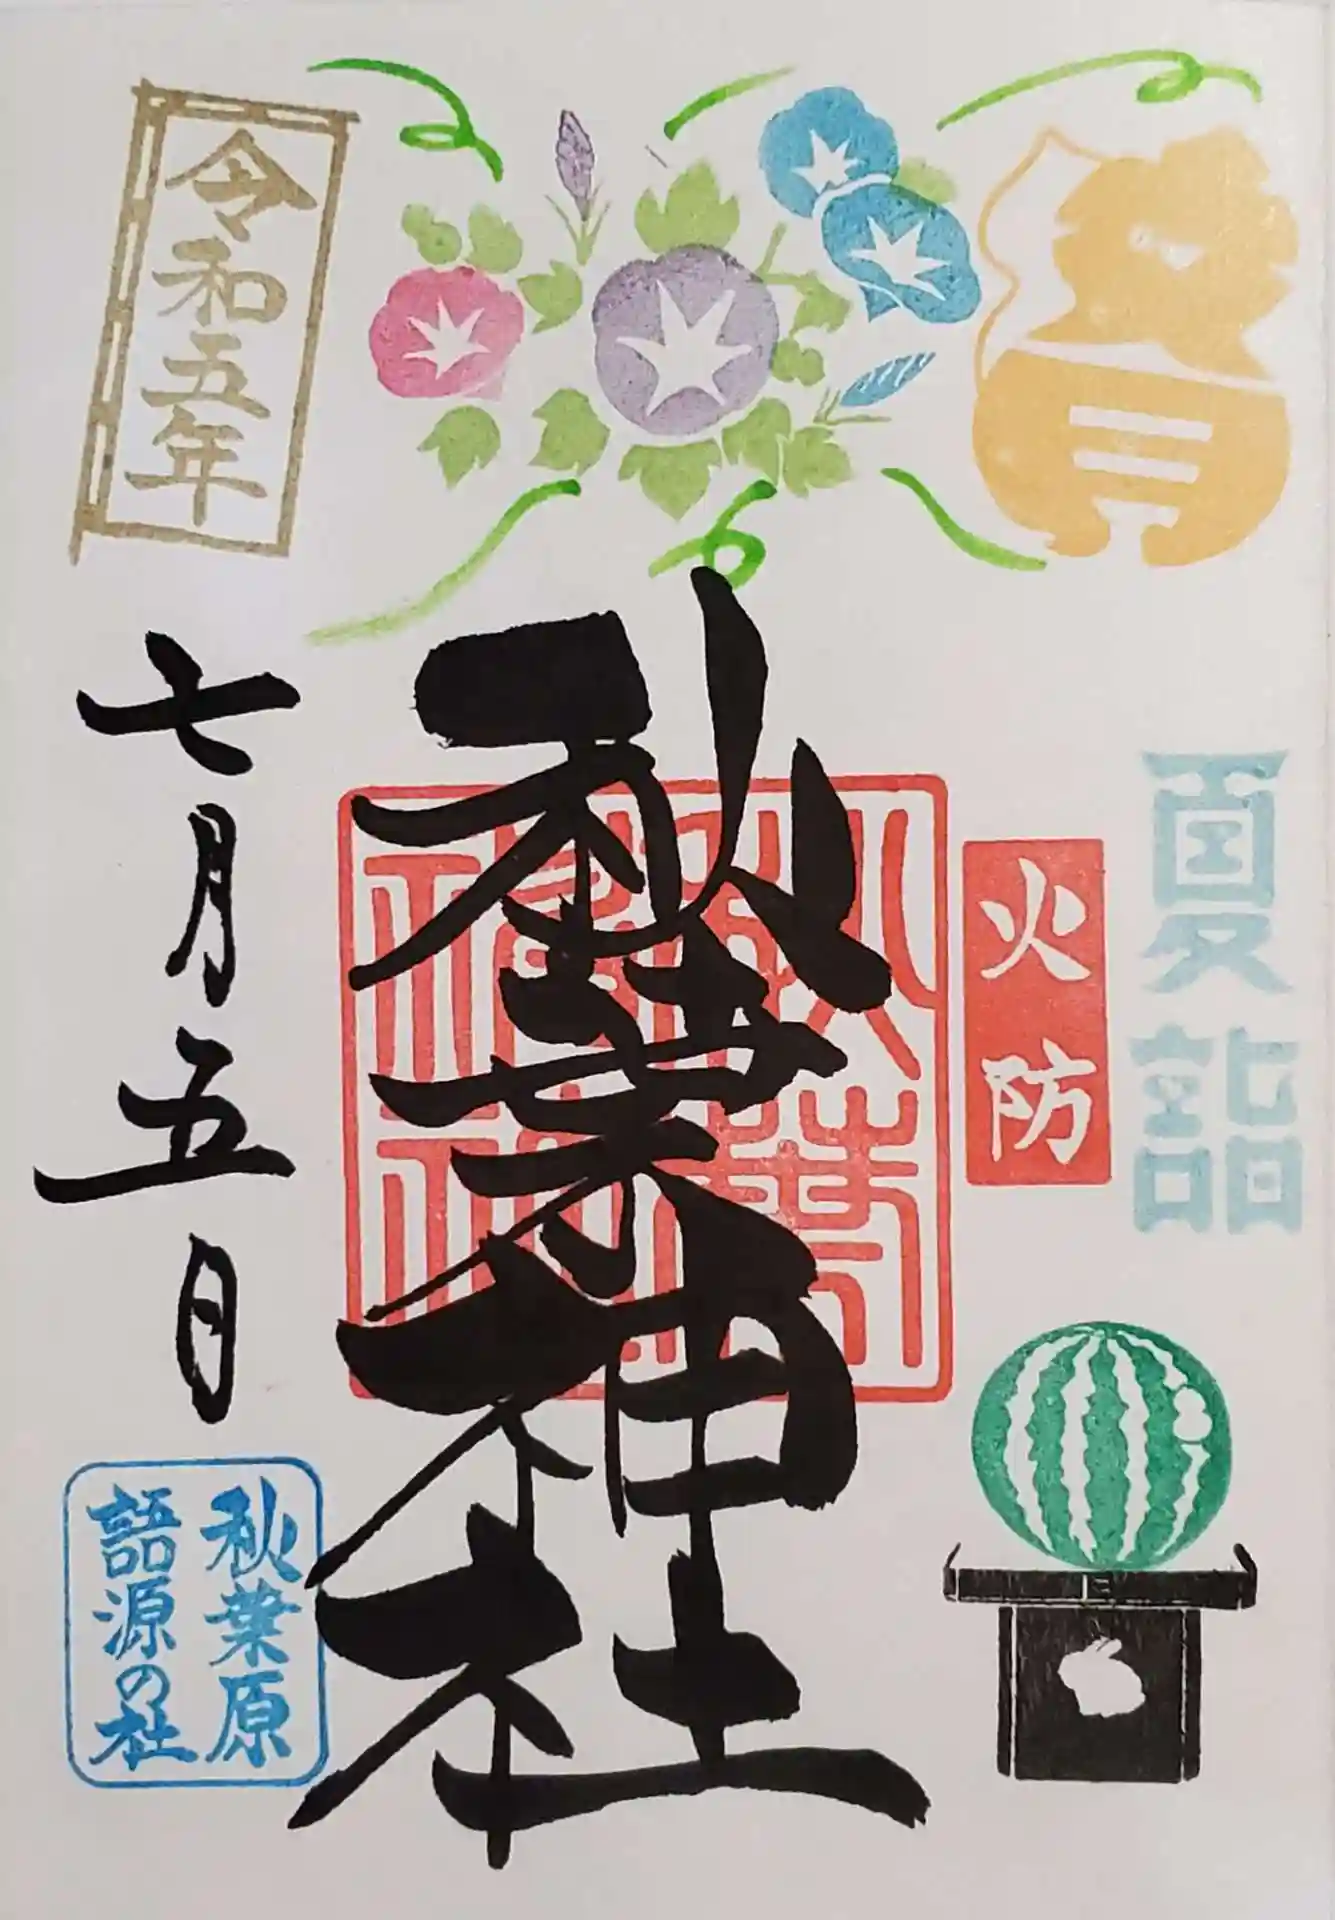 夏詣
火防
秋葉神社
令和五年
七月五日
秋葉原
語源の社